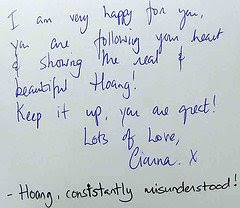 I am very happy for you,
you are following your heart
& showing the real &
beautiful Hoang!
Keep it up, you are great!
Lots of Love,
Cianna. X
- Hoang, consistantly misunderstood!